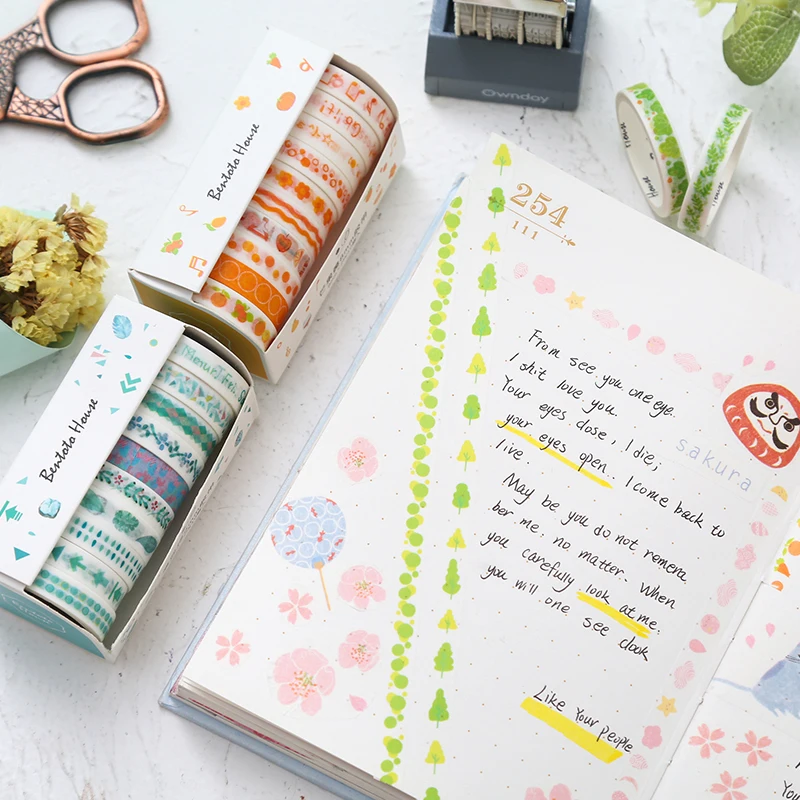 Ownday
Bentoto House
Bentoto House
House
254
111
From see you one eye.
I shit love you.
Your eyes close, I die;
your eyes open, I come back to
live.
sakura
May be you do not remem
ber me, no matter. When
you carefully look at me.
you will one see clook
Like Your people